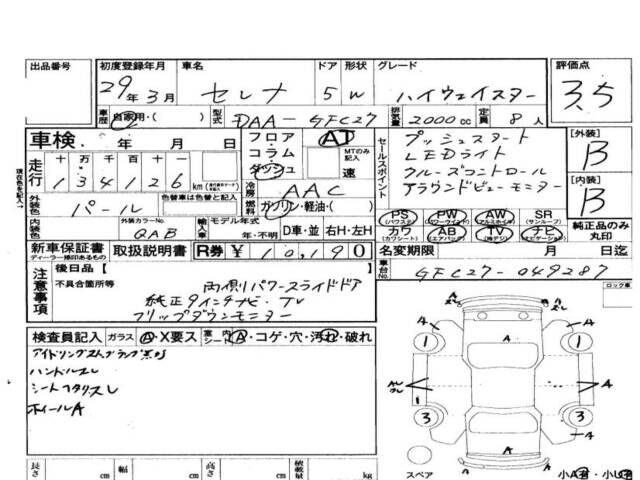 出品番号 初度登録年月 車名 ドア 形状 グレード 評価点
29年3月 セレナ 5 W ハイウェイスター 3.5
車歴 自家用・( ) 型式 DAA-GFC27 排気量 2000cc 定員 8人
車検 年 月 日 フロア・コラム・ダッシュ AT MTのみ記入 速
セールスポイント プッシュスタート
LEDライト
クルーズコントロール
アラウンドビューモニター
[外装] B
[内装] B
現在色を記入→
走行 十 万 千 百 十
134126 km
冷房 AAC
外装色 パール 色替車は色替と記入 燃料 ガソリン・軽油・( )
PS (パワステ) PW (パワーウインド) AW (アルミホイル) SR (サンルーフ) 純正品のみ丸印
カワ (カワシート) AB (エアバッグ) TV ナビ (ナビゲーション)
内装色 外装カラーNo. QAB 輸入車 モデル年式 年・不明 D車・並 右H・左H
新車保証書 ディーラー捺印あるもの 取扱説明書 R券 ¥10,190
名変期限 月 日迄
車台No. GFC27-049287
注意事項 後日品【 】
不具合箇所等 両側パワースライドドア
純正9インチナビ・TV
フリップダウンモニター
ロック車
検査員記入 ガラス A・X要ス 室内 シート A・コゲ・穴・汚れ・破れ
アイドリングストップランプ点灯
ハンドルスレ
シートヘタリスレ
ホイールA
A A A
1 1
A
1 1
A
3 3
A A
A A
スペア 小A有・小U有
長さ cm 幅 cm 高さ cm 積載量 kg